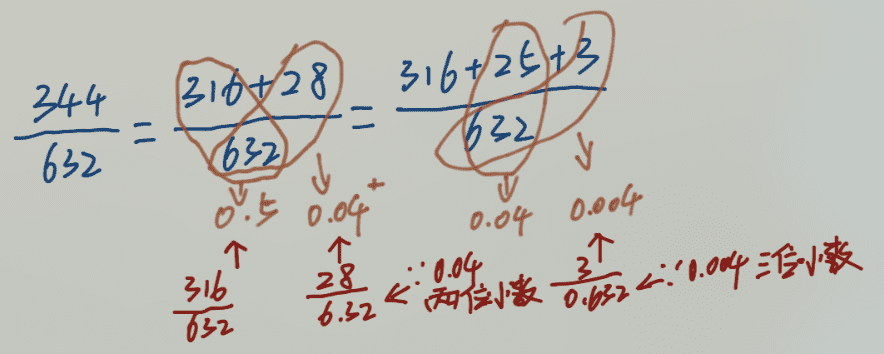 344/632 = (316+28)/632 = (316+25+3)/632
0.5 0.04⁺ 0.04 0.004
316/632 28/6.32 ∵0.04 两位小数 3/0.632 ∵0.004 三位小数